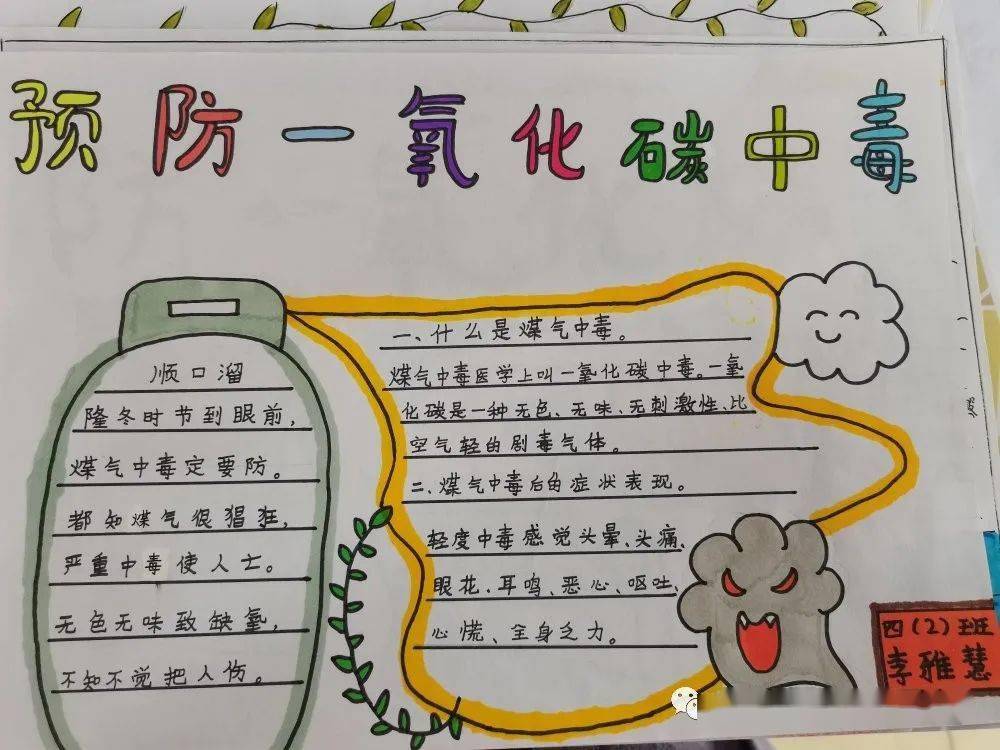 预防一氧化碳中毒
顺口溜
隆冬时节到眼前,
煤气中毒定要防。
都知煤气很猖狂,
严重中毒使人亡。
无色无味致缺氧,
不知不觉把人伤。
一、什么是煤气中毒。
煤气中毒医学上叫一氧化碳中毒。一氧
化碳是一种无色、无味、无刺激性、比
空气轻的剧毒气体。
二、煤气中毒后的症状表现。
轻度中毒感觉头晕、头痛、
眼花、耳鸣、恶心、呕吐、
心慌、全身乏力。
四(2)班
李雅慧